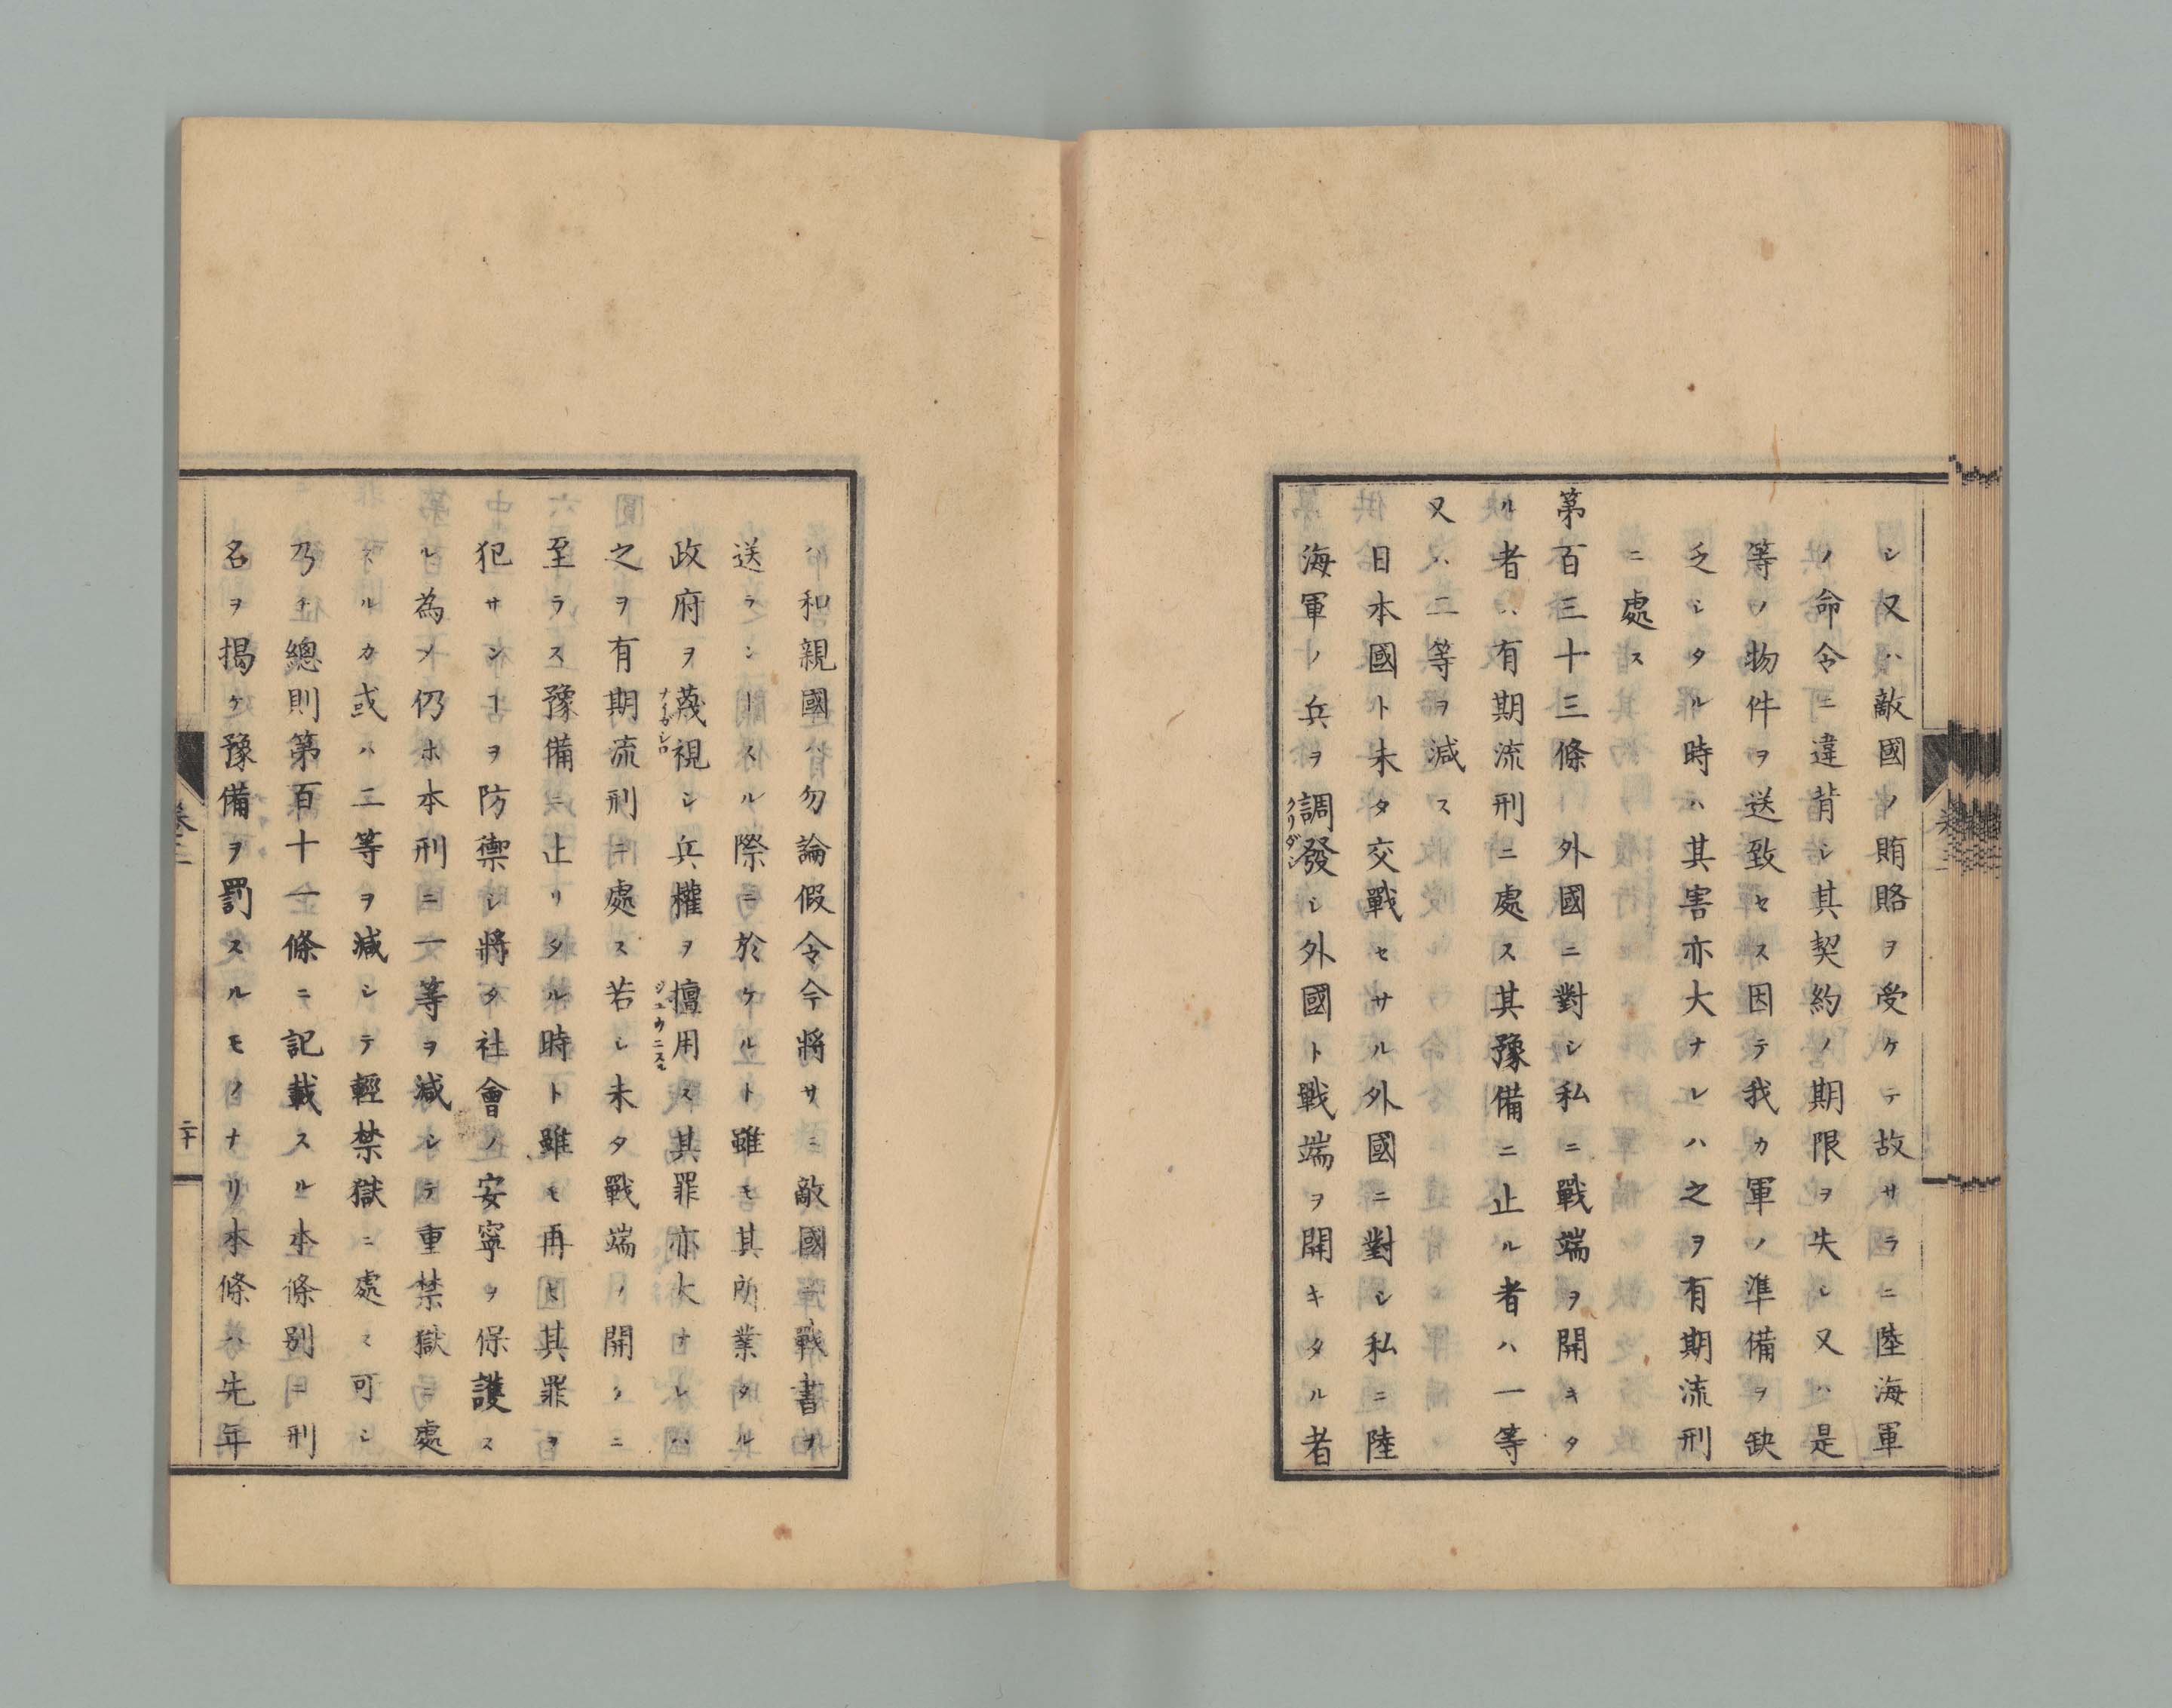 シ又ハ敵國ノ賄賂ヲ受ケテ故サラニ陸海軍
ノ命令ニ違背シ其契約ノ期限ヲ失シ又ハ是
等ノ物件ヲ送致セス因テ我カ軍ノ準備ヲ缺
乏シタル時ハ其害亦大ナレハ之ヲ有期流刑
ニ處ス
第百三十三條 外國ニ對シ私ニ戰端ヲ開キタ
ル者ハ有期流刑ニ處ス其豫備ニ止ル者ハ一等
又ハ二等ヲ減ス
日本國ト未タ交戰セサル外國ニ對シ私ニ陸
海軍ノ兵ヲ調發シ外國ト戰端ヲ開キタル者
クリダシ
ハ和親國ハ勿論假令今將サニ敵國ニ戰書ヲ
送ラシヿスル際ニ於ケルト雖モ其所業タル
政府ヲ蔑視シ兵權ヲ擅用ス其罪亦大ナレハ
ナイガシロ
ジユウニスル
之ヲ有期流刑ニ處ス若シ未タ戰端ノ開クニ
至ラス豫備ニ止リタル時ト雖モ再ヒ其罪ヲ
犯サンヿヲ防禦シ將タ社會ノ安寧ヲ保護ス
ル為メ仍ホ本刑ニ一等ヲ減シテ重禁獄ニ處
スルカ或ハ二等ヲ減シテ輕禁獄ニ處ス可シ
乃チ總則第百十一條ニ記載スル本條別ニ刑
名ヲ揭ケ豫備ヲ罰スルモノナリ本條ハ先年
卷三
二十